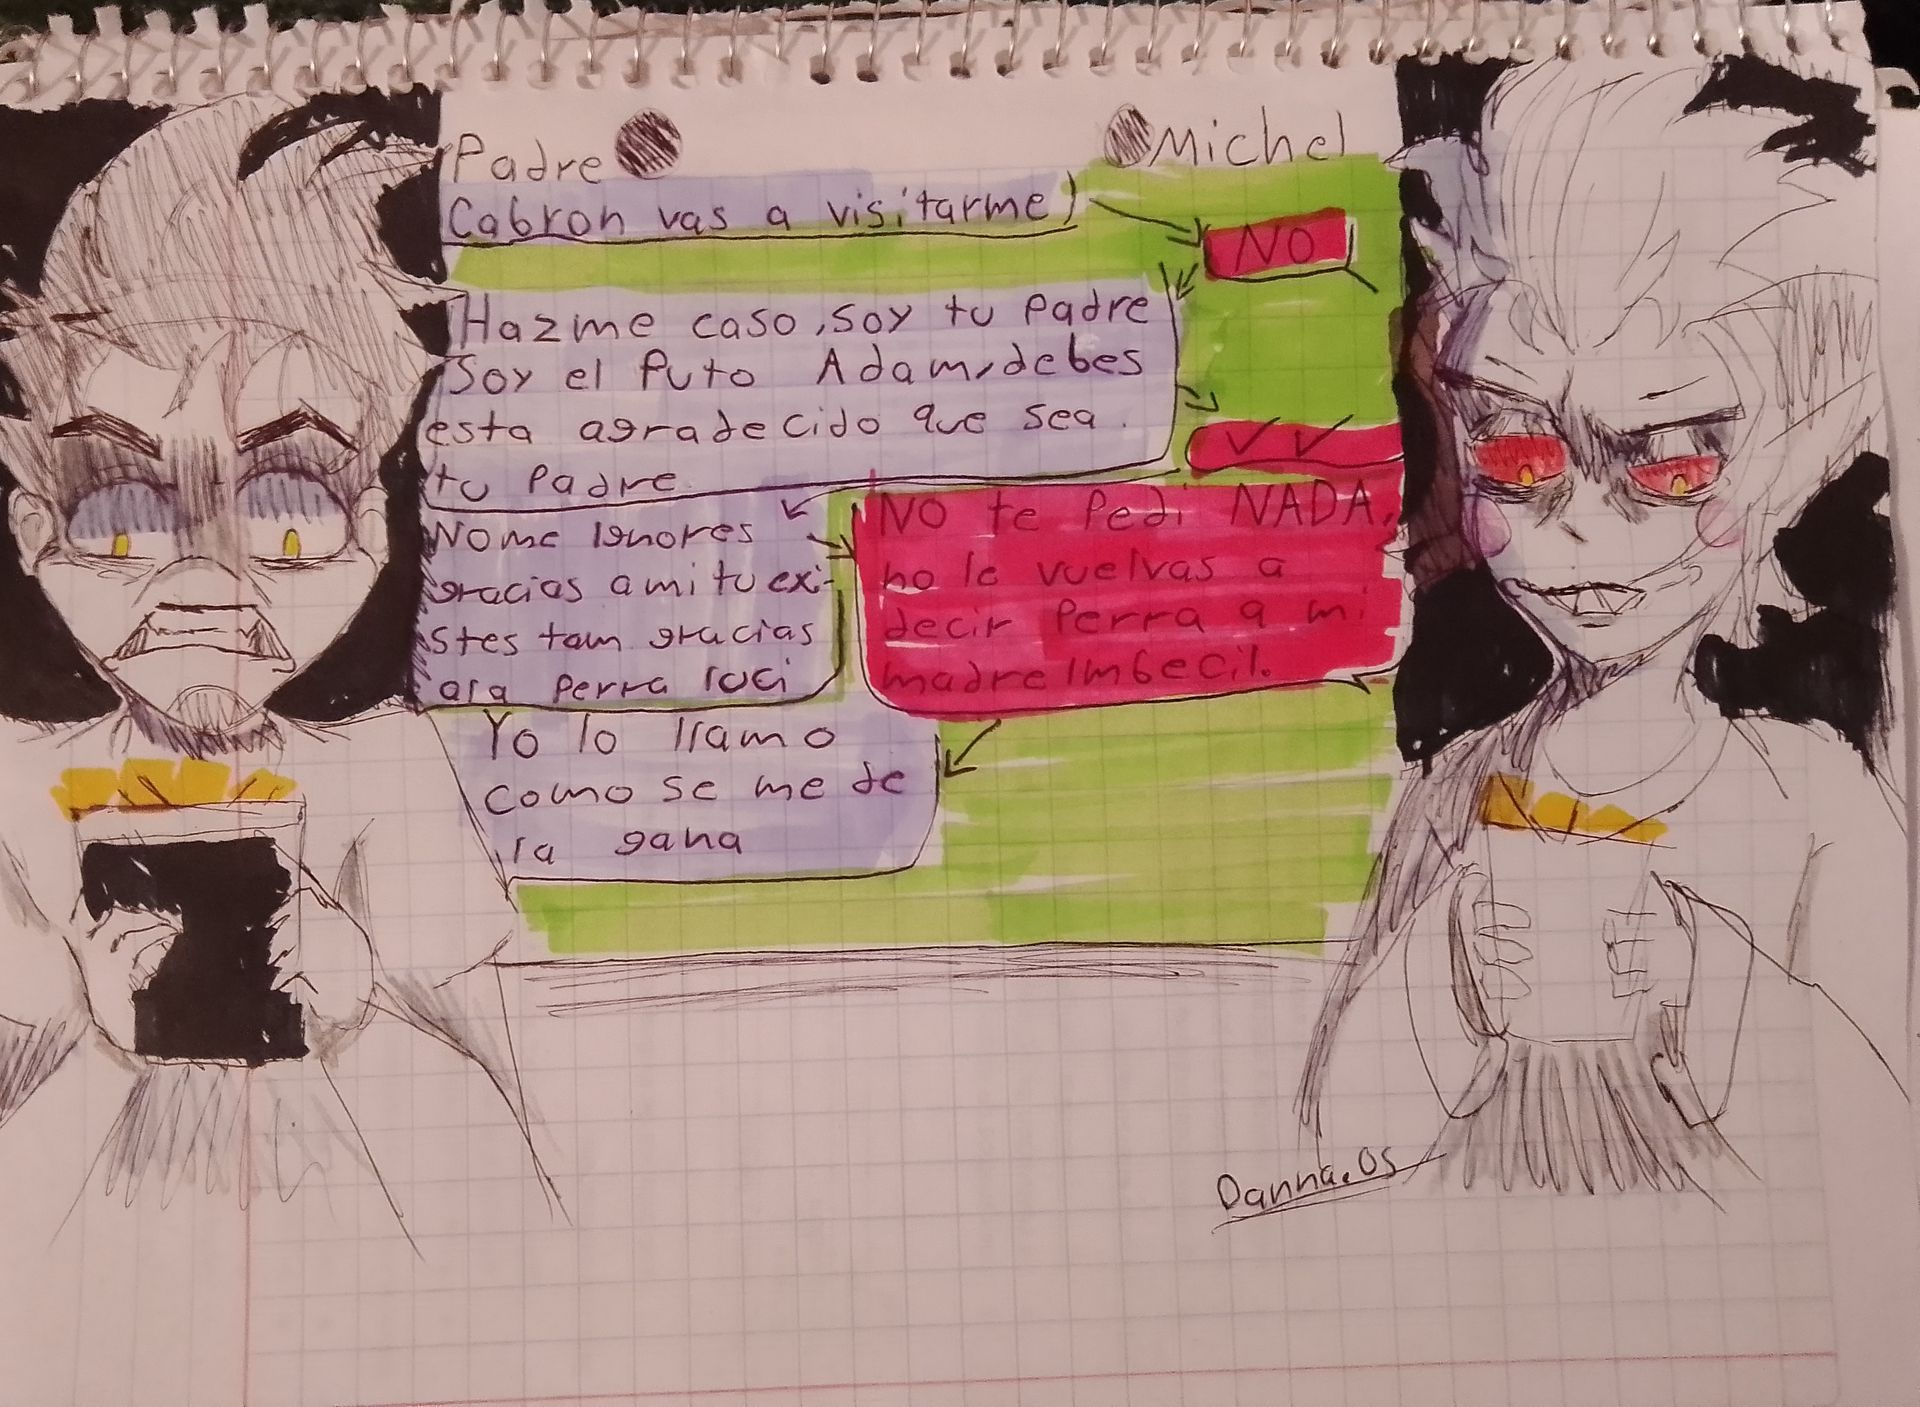 Padre
Michel
Cabron vas a visitarme
NO
Hazme caso, soy tu Padre
Soy el Puto Adam, debes
esta agradecido que sea.
tu Padre
No me Ignores
gracias a mi tu exi-
stes tam gracias
ala perra luci
NO te Pedi NADA,
no le vuelvas a
decir Perra a mi
madre Imbecil.
Yo lo llamo
como se me de
la gana
Danna.Os